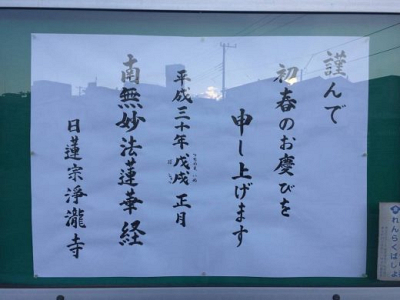 謹んで
初春のお慶びを
申し上げます
平成三十年戊戌正月
南無妙法蓮華経
日蓮宗淨瀧寺
れんらくばしょ